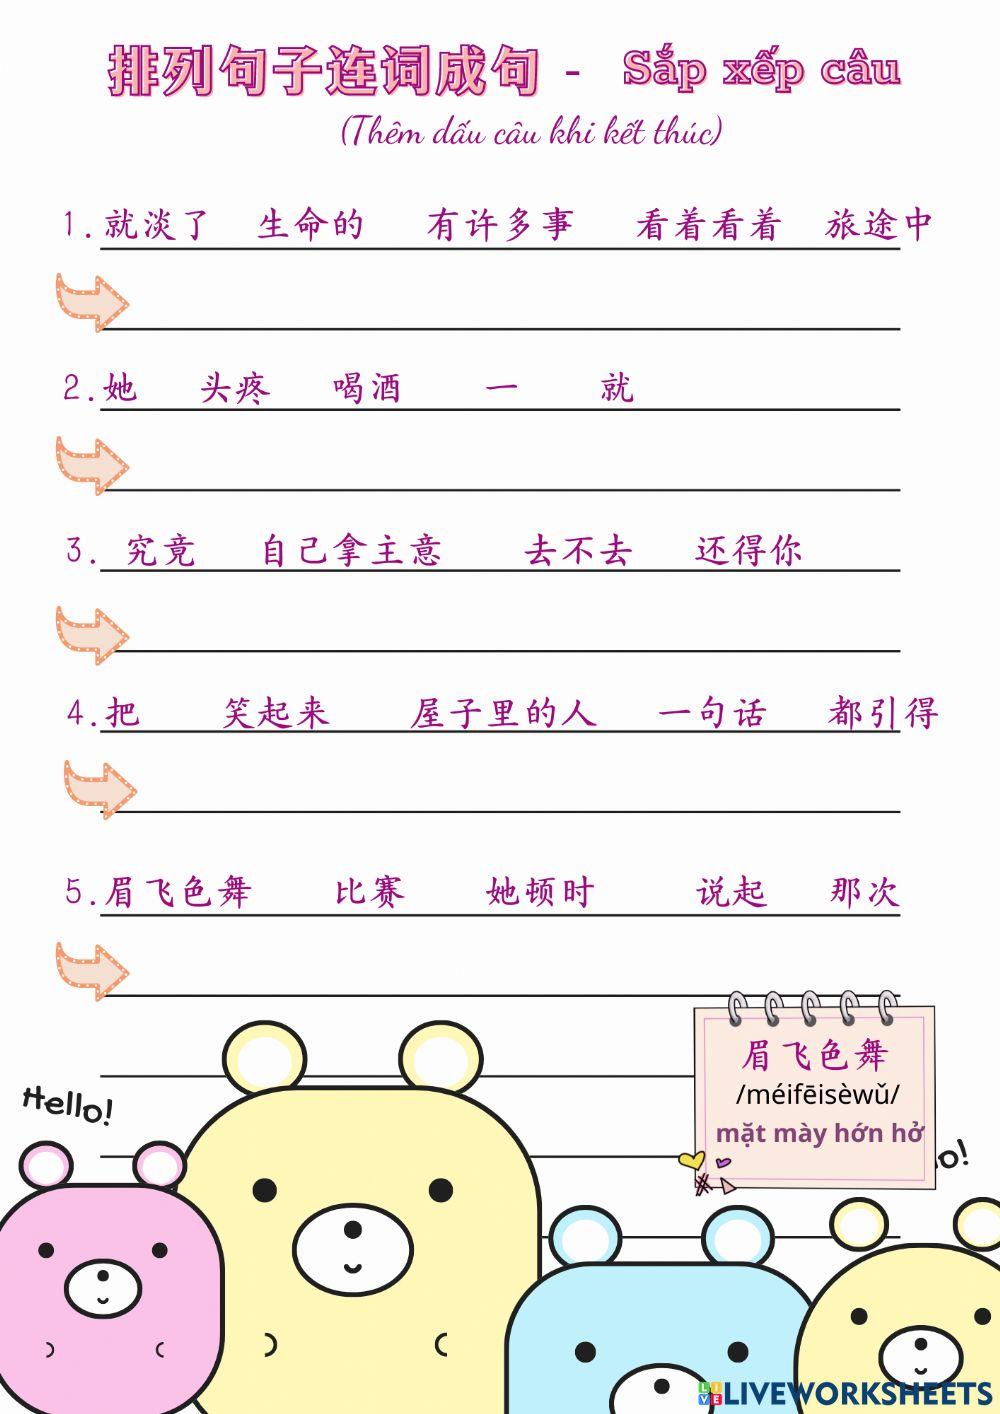 排列句子连词成句 - Sắp xếp câu
(Thêm dấu câu khi kết thúc)
1. 就淡了 生命的 有许多事 看着看着 旅途中
2. 她 头疼 喝酒 一 就
3. 究竟 自己拿主意 去不去 还得你
4. 把 笑起来 屋子里的人 一句话 都引得
5. 眉飞色舞 比赛 她顿时 说起 那次
眉飞色舞
/méifēisèwǔ/
mặt mày hớn hở
Hello!
lo!
LIVEWORKSHEETS